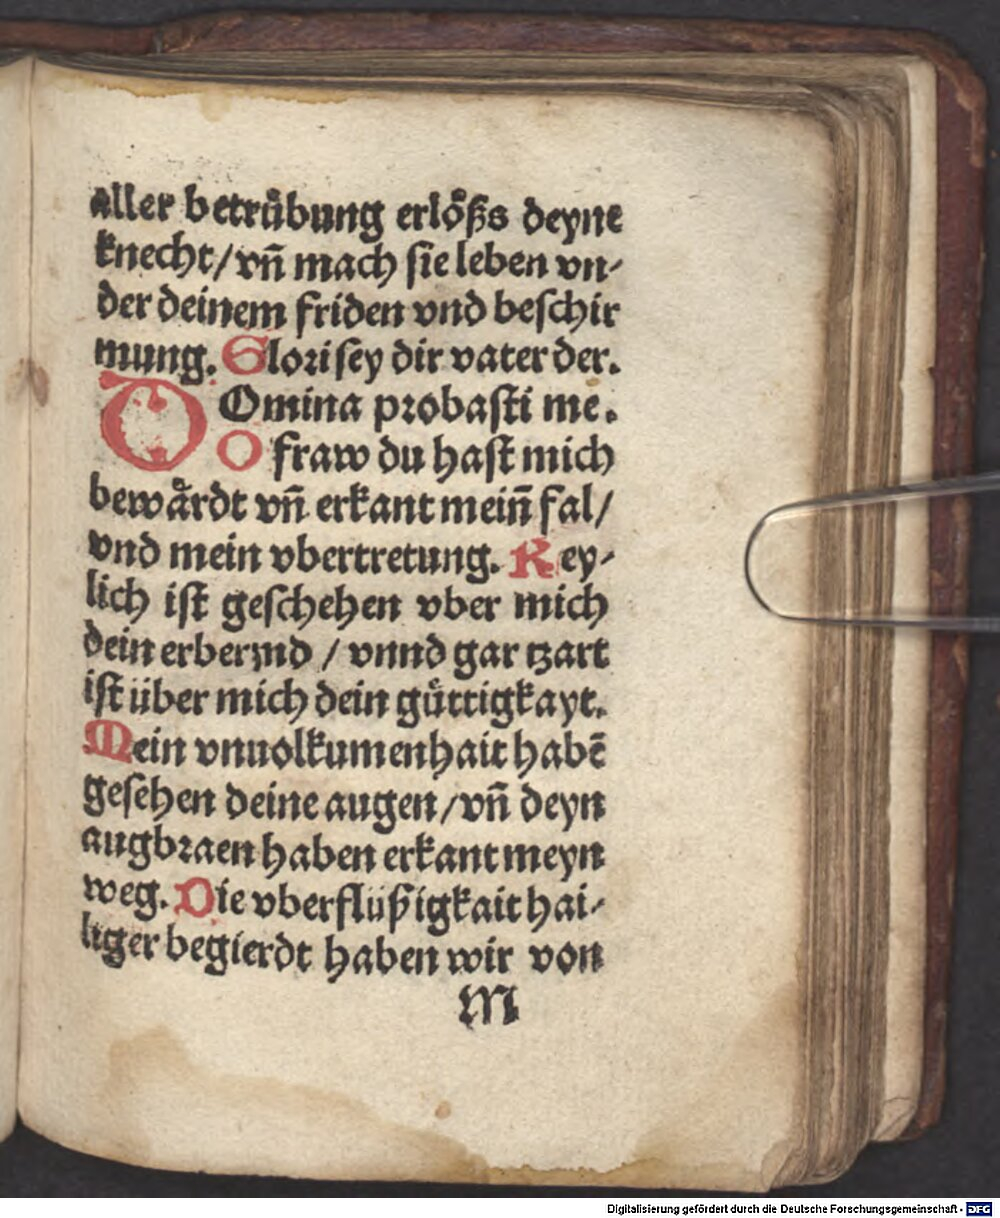 aller betruͤbung erloͤßs deyne
knecht/vñ mach sie leben vn-
der deinem friden vnd beschir
mung. Glori sey dir vater der.
DOmina probasti me.
O fraw du hast mich
bewaͤrdt vñ erkant meiñ fal/
vnd mein vbertretung. Rey-
lich ist geschehen vber mich
dein erbermd / vnnd gar tzart
ist über mich dein guͤttigkayt.
Mein vnuolkumenhait habē
gesehen deine augen/vñ deyn
augbraen haben erkant meyn
weg. Die vberflüßigkait hai-
liger begierdt haben wir von
M
Digitalisierung gefördert durch die Deutsche Forschungsgemeinschaft - DFG